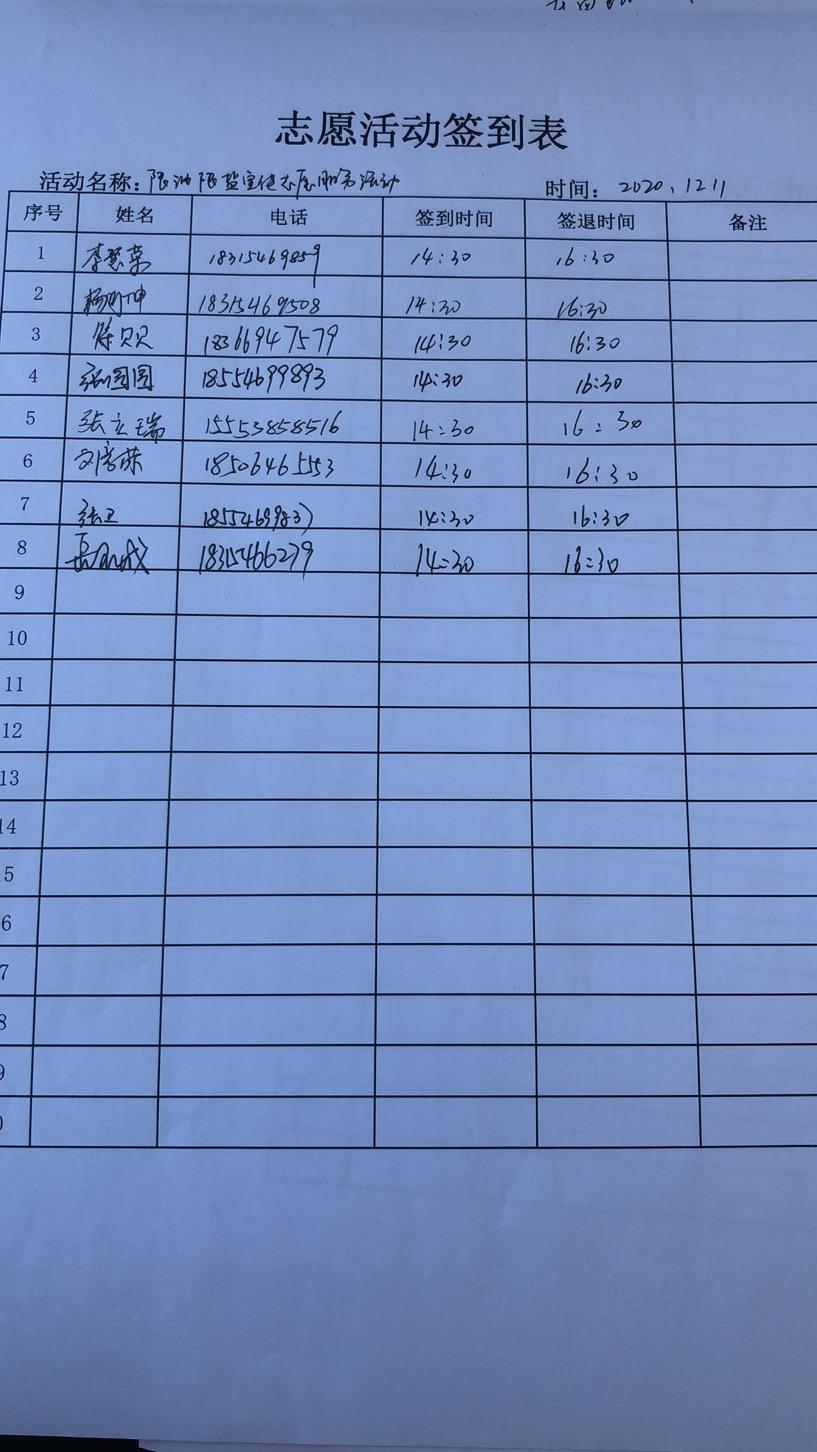 志愿活动签到表
活动名称：限油限盐宣传志愿服务活动 时间：2020、12 11
序号 姓名 电话 签到时间 签退时间 备注
1 18315469859 14:30 16:30
2 18315469508 14:30 16:30
3 陈贝贝 18366947579 14:30 16:30
4 张圆圆 18554699893 14:30 16:30
5 张立瑞 15553858516 14:30 16:30
6 18506465553 14:30 16:30
7 张卫 14:30 16:30
8 18315466279 14:30 16:30
9
10
11
12
13
14
5
6
7
8
9
0